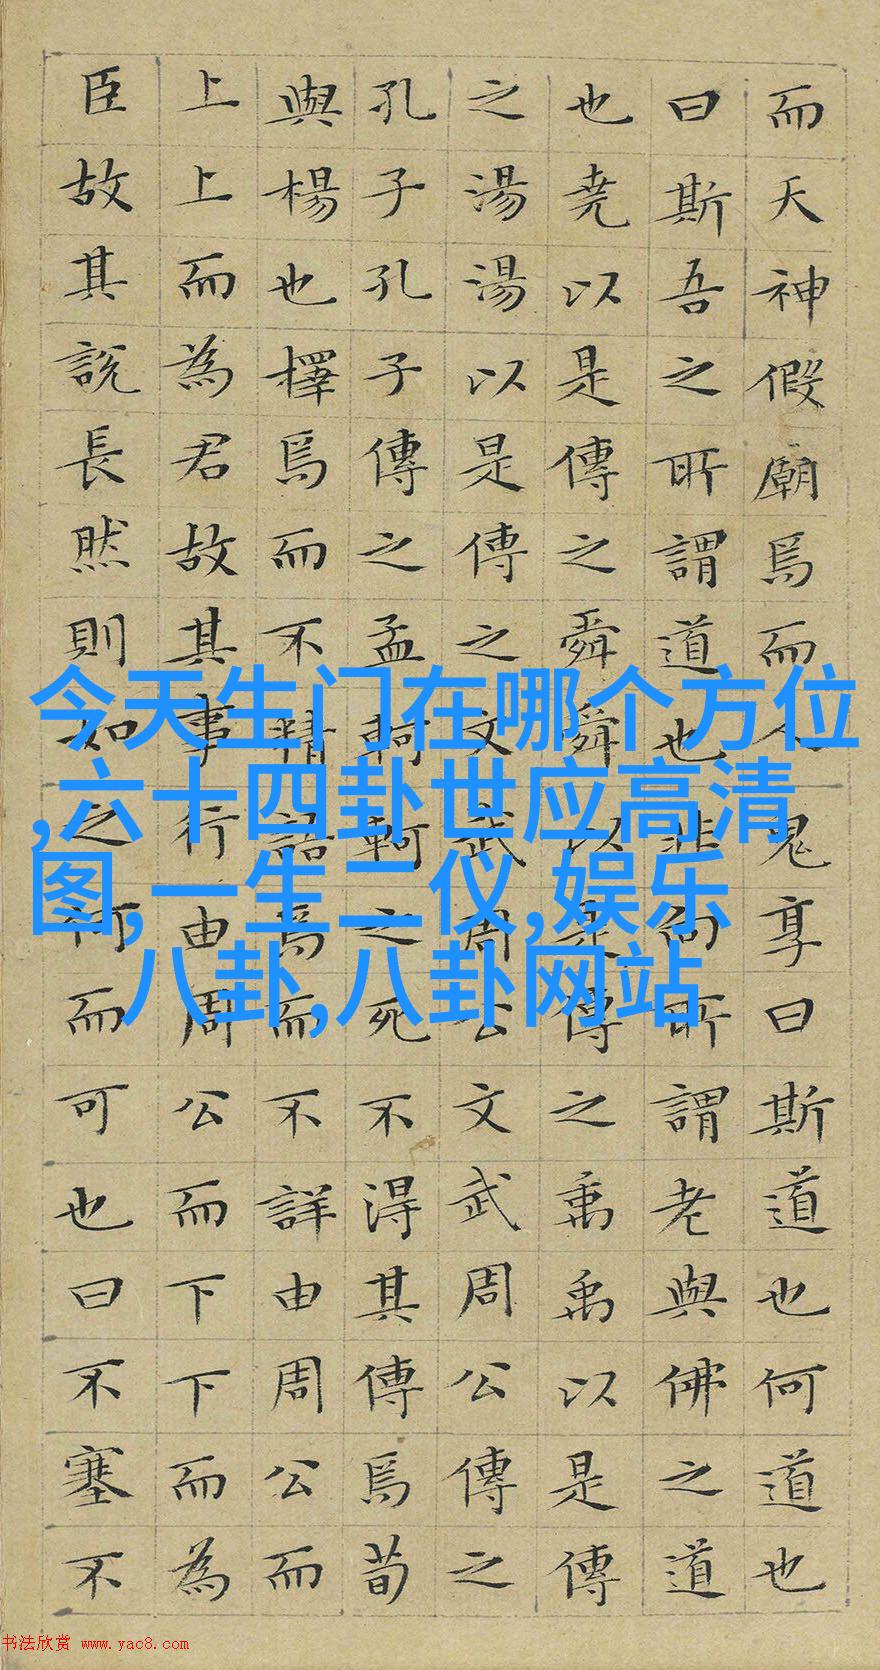 而天神假廟焉而人鬼享曰斯道也何道也
曰斯吾之所謂道也非向所謂老與佛之道
也堯以是傳之舜舜以是傳之禹禹以是傳
之湯湯以是傳之文武周公文武周公傳之
孔子孔子傳之孟軻軻之死不得其傳焉荀
與楊也擇焉而不精語焉而不詳由周公而
上上而為君故其事行由周公而下下而為
臣故其說長然則如之何而可也曰不塞不
今天生门在哪个方位
,六十四卦世应高清
图,一生二仪,娱乐
八卦,八卦网站
书法欣赏 www.yac8.com